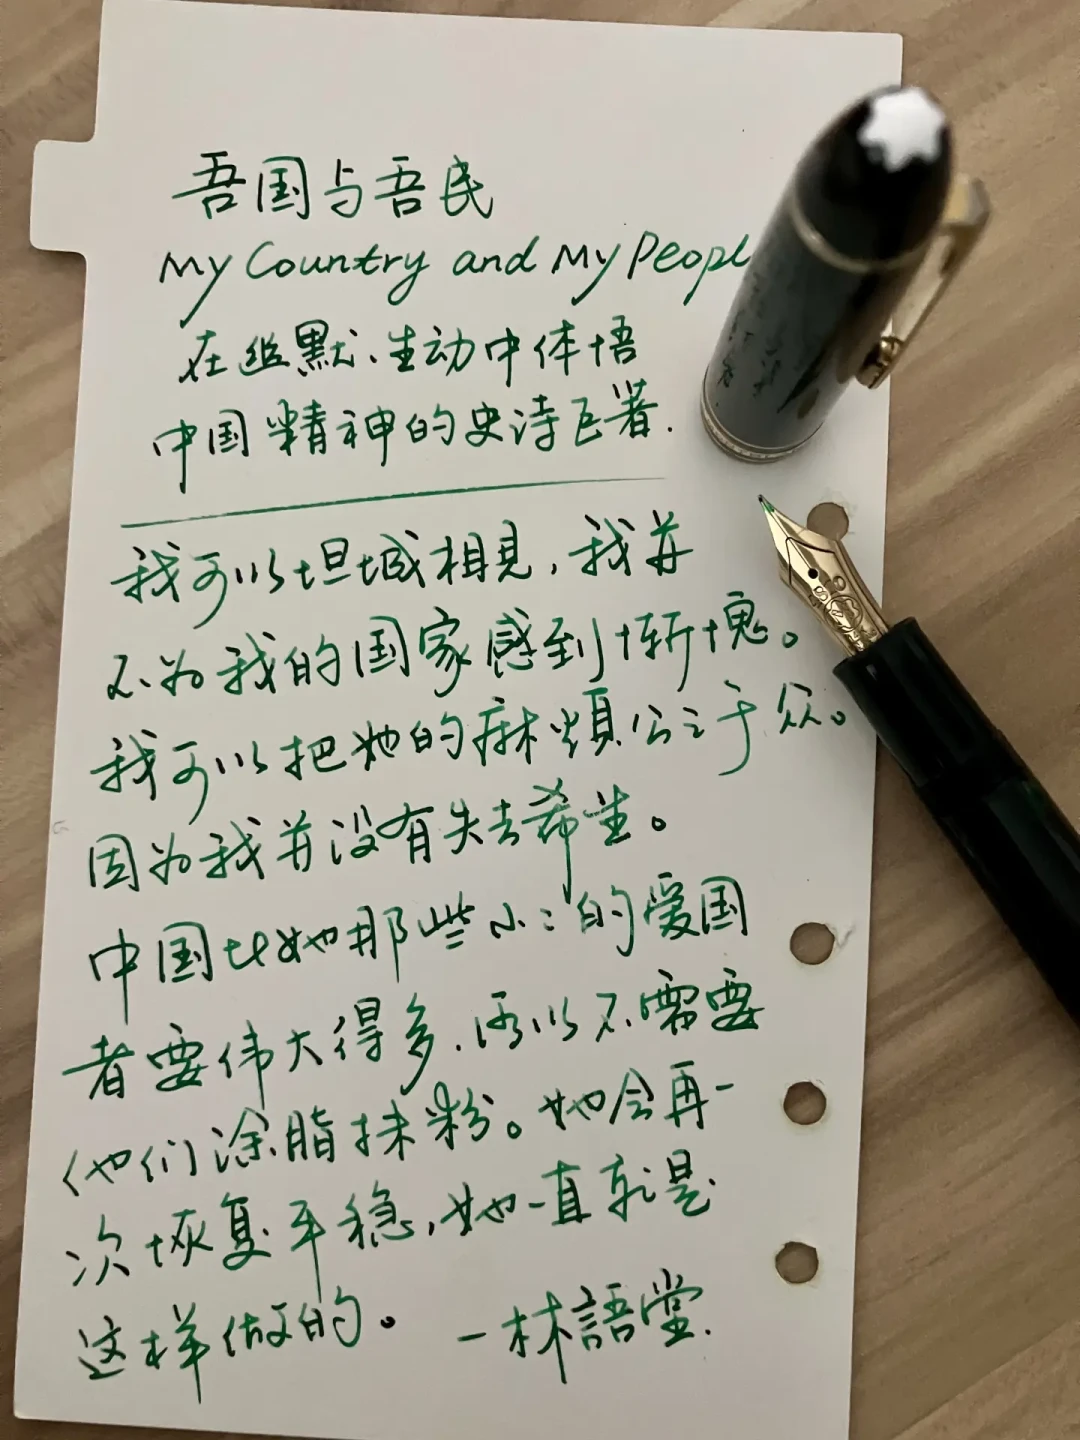 吾国与吾民
My Country and My Peopl
在幽默、生动中体悟
中国精神的史诗巨著.
我可以坦城相見,我并
不为我的国家感到惭愧。
我可以把她的麻煩公之于众。
因为我并没有失去希望。
中国比她那些小小的爱国
者要伟大得多.所以不需要
他们涂脂抹粉。她会再一
次恢复平稳,她一直就是
这样做的。 —林語堂.